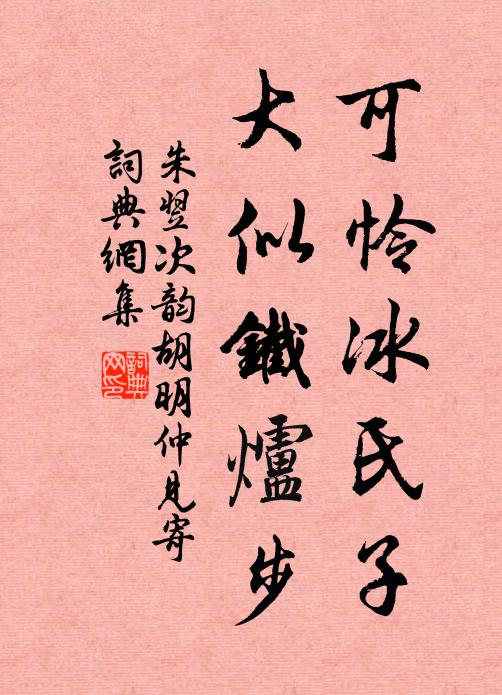 可怜冰氏子
大似鐵爐步
朱翌次韵胡明仲見寄
詞典網集
詞典
网印